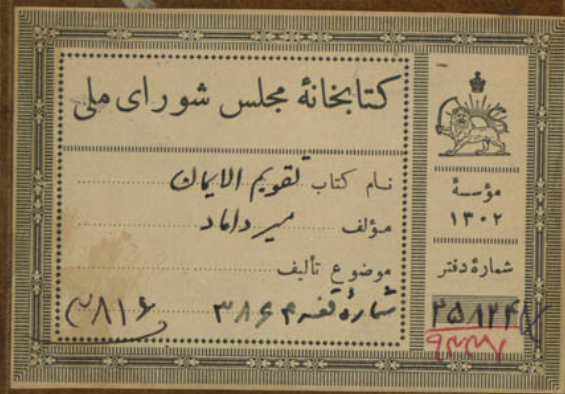 کتابخانهٔ مجلس شورای ملی
نام کتاب تقویم الایمان
مؤلف میرداماد
موضوع تألیف
شمارهٔ قفسه ۳۸۶۴
۳۸۱۶
مؤسسهٔ
۱۳۰۲
شمارهٔ دفتر